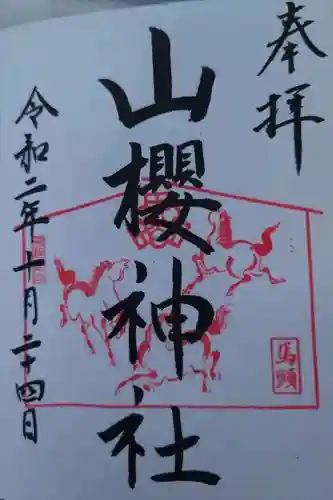 奉拝
山櫻神社
令和二年十月二十四日
馬頭